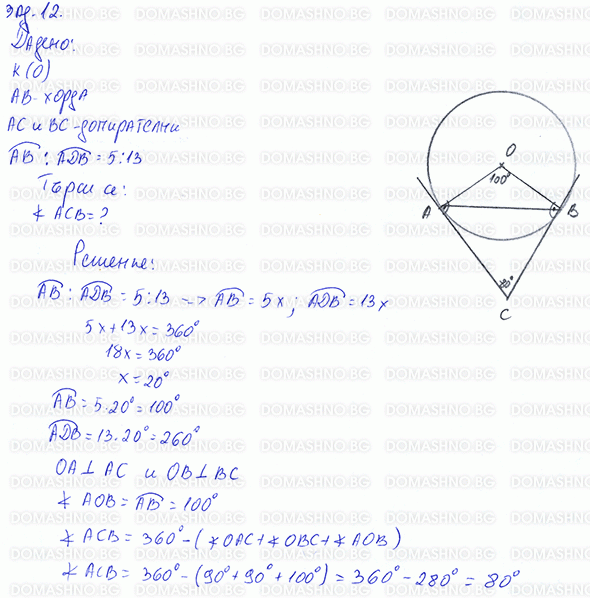 зад. 12.
Дадено:
K(O)
AB-хорда
AC и BC-допирателни
AB : ADB = 5:13
Търси се:
∢ ACB = ?
Решение:
AB : ADB = 5:13 --> AB = 5x ; ADB = 13x
5x+13x = 360°
18x = 360°
x = 20°
AB = 5.20° = 100°
ADB = 13.20° = 260°
OA ⊥ AC и OB ⊥ BC
∢ AOB = AB = 100°
∢ ACB = 360° - (∢ OAC + ∢ OBC + ∢ AOB)
∢ ACB = 360° - (90° + 90° + 100°) = 360° - 280° = 80°
O
100°
A
B
80°
C
DOMASHNO.BG